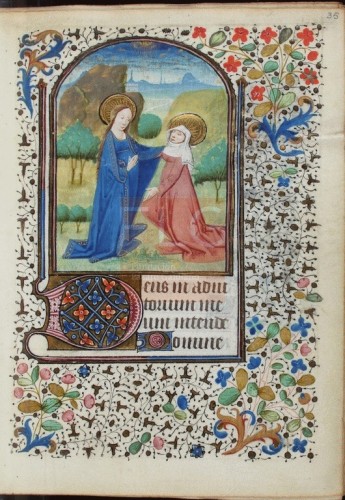 35
eus in adiu
torium me
um intende
Domine